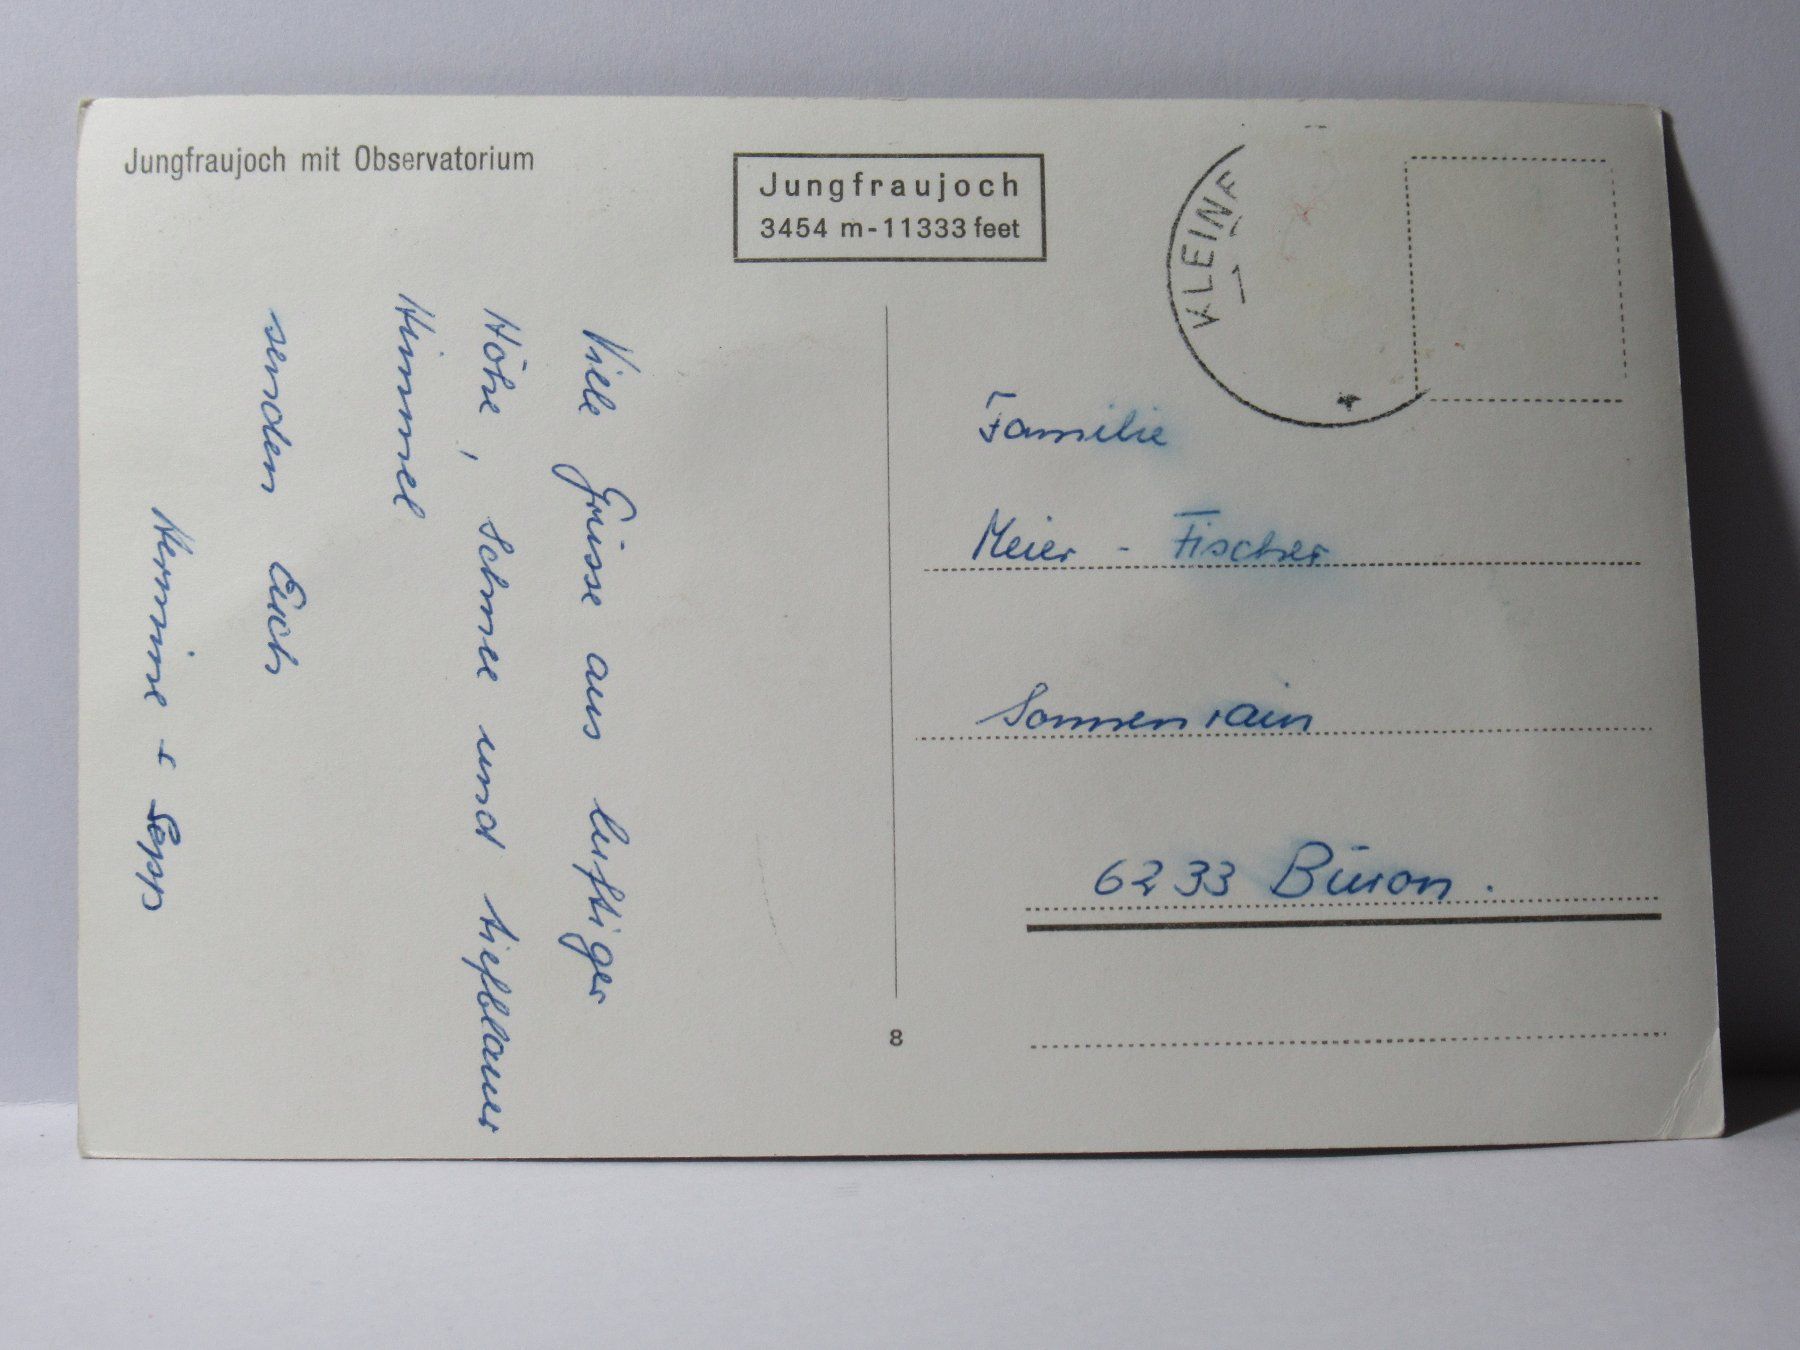 Jungfraujoch mit Observatorium
Jungfraujoch
3454 m - 11333 feet
KLEINE
Viele Grüsse aus luftiger
Höhe, Schnee und tiefblauer
Himmel
senden Euch
Hermine + Sepp
Familie
Meier - Fischer
Sonnenrain
6233 Büron.
8